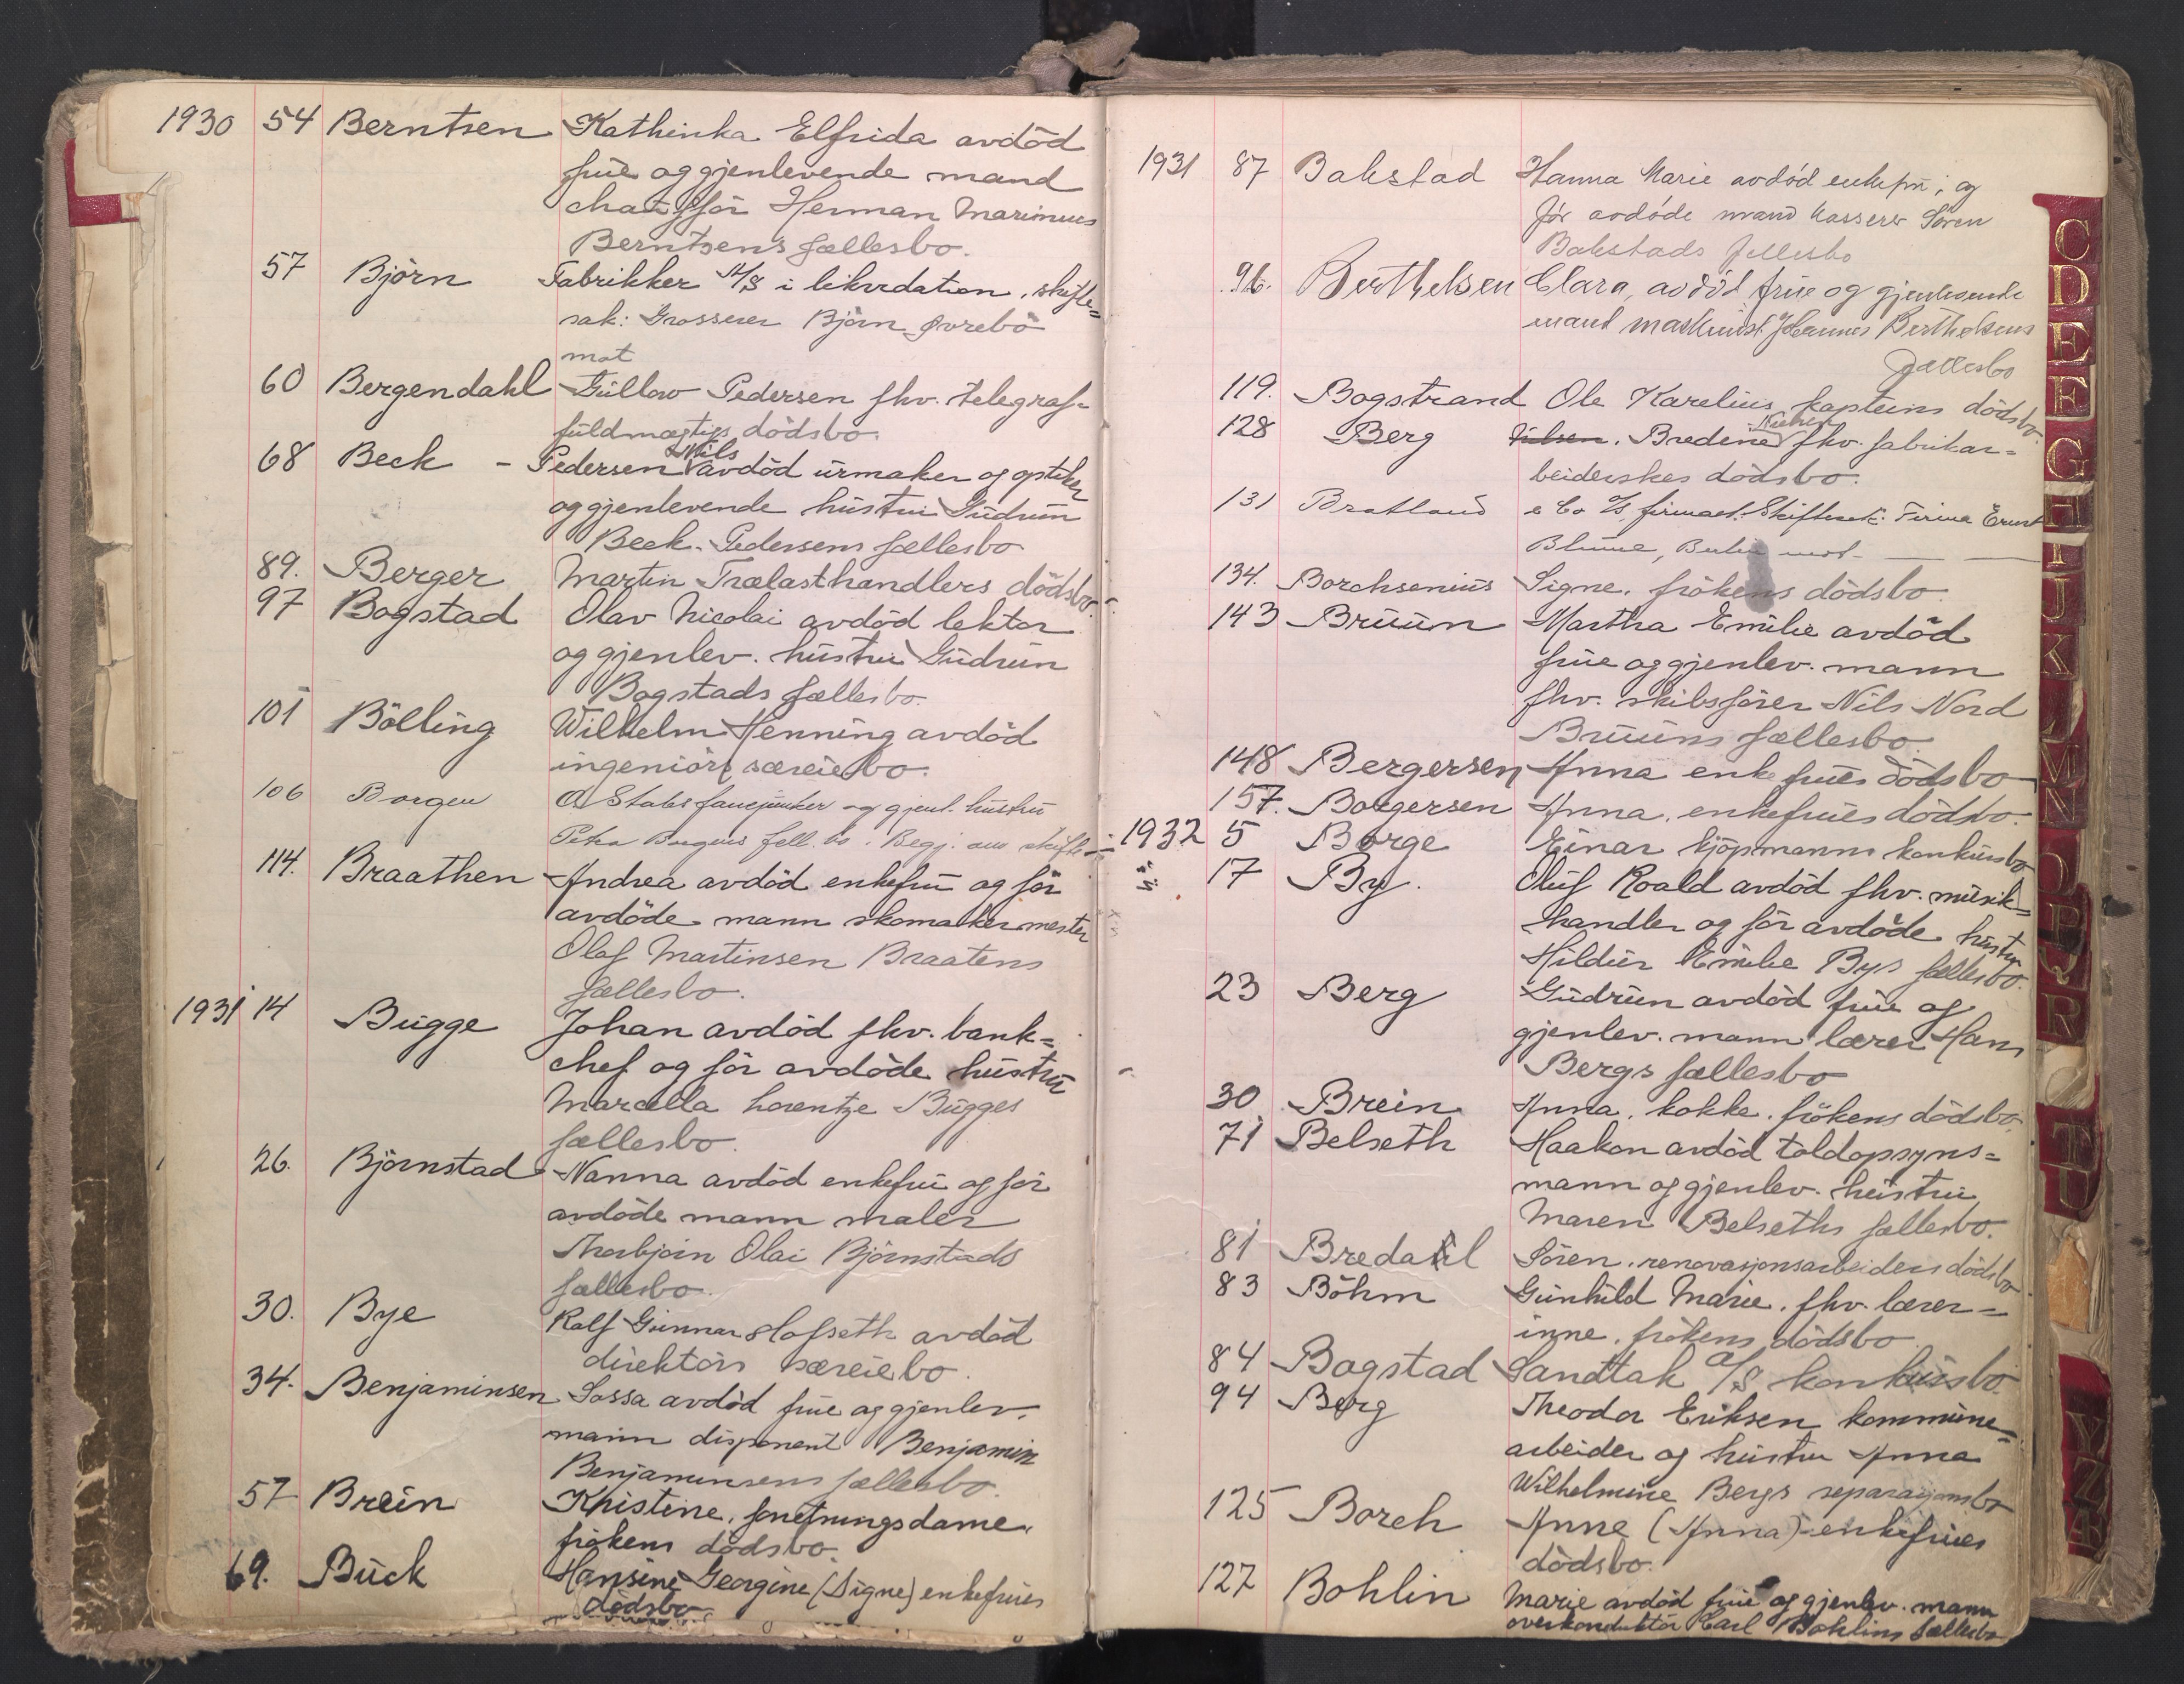 1930 54 Berntsen Kathinka Elfrida avdöd
frue og gjenlevende mand
chaufför Herman Marinius
Berntsens fællesbo.
57 Björn Fabrikker A/S i likvidation, skifte=
sak: Grosserer Björn Øvrebö
mot
60 Bergendahl Güllow Pedersen fhv. telegraf=
fuldmægtigs dödsbo.
68 Beck - Pedersen Nils avdöd urmaker og optiker
og gjenlevende hustru Gudrun
Beck-Pedersens fællesbo
89. Berger Martin Trælasthandlers dödsbo.
97 Bogstad Olav Nicolai avdöd lektor
og gjenlev. hustru Gudrun
Bogstads fællesbo.
101 Bölling Wilhelm Henning avdöd
ingeniörs særeiebo.
106 Borgen O. Stabsfanejunker og gjenl. hustru
Petra Borgens fell. bo. Begj. om skifte
114. Braathen Andrea avdöd enkefru og för
avdöde mann skomakermester
Olaf Martinsen Braatens
fællesbo.
1931 14 Bugge Johan avdöd fhv. bank=
chef og för avdöde hustru
Marcella Lorentze Bugges
fællesbo.
26. Björnstad Nanna avdöd enkefru og för
avdöde mann maler
Thorbjörn Olai Björnstads
fællesbo.
30. Bye Ralf Gunnar Hofseth avdöd
direktörs særeiebo.
34. Benjaminsen Sassa avdöd frue og gjenlev.
mann disponent Benjamin
Benjaminsens fællesbo.
57 Brein Kristine, forretningsdame,
frökens dödsbo.
69. Buck Hansine Georgine (Signe) enkefrues
dödsbo
1931 87 Bakstad Hanna Marie avdöd enkefru, og
för avdöde mand kasserer Sören
Bakstads fellesbo
96. Berthelsen Clara, avdöd frue og gjenlevende
mand maskinist Johannes Berthelsens
fællesbo
119. Bogstrand Ole Karelius, kapteins dödsbo.
128 Berg Nilsen. Bredine Nielsen fhv. fabrikar=
beiderskes dödsbo.
131 Bratland & Co A/S, firmaet. Skiftesak: Firma Ernst
Blume, Berlin mot
134. Borchsenius Signe, frökens dödsbo.
143 Bruun Martha Emilie avdöd
frue og gjenlev. mann
fhv. skibsförer Nils Nord
Bruuns fællesbo.
148 Bergersen Anna enkefrues dödsbo
157. Borgersen Anna, enkefrues dödsbo.
1932 5 Borge Einar kjöpmanns konkursbo
17 By. Oluf Roald avdöd fhv. musik=
handler og för avdöde hustru
Hildur Emilie Bys fællesbo.
23 Berg Gudrun avdöd frue og
gjenlev. mann lærer Hans
Bergs fællesbo
30 Brein Anna, kokke, frökens dödsbo.
71 Belseth Haakon avdöd toldopsyns=
mann og gjenlev. hustru
Maren Belseths fællesbo.
81 Bredahl Sören, renovasjonsarbeiders dödsbo
83 Böhm Gunhild Marie, fhv. lærer=
inne, frökens dödsbo
84 Bogstad Sandtak A/S konkursbo.
94 Berg Theodor Eriksen kommune=
arbeider og hustru Anna
Wilhelmine Bergs separasjonsbo
125 Borch Anne (Anna) enkefrues
dödsbo.
127 Bohlin Marie avdöd frue og gjenlev. mann
overkonduktör Carl Bohlins fællesbo
C
D
E
F
G
H
I
J
K
L
M
N
O
P
Q
R
T
Y
Z
Æ